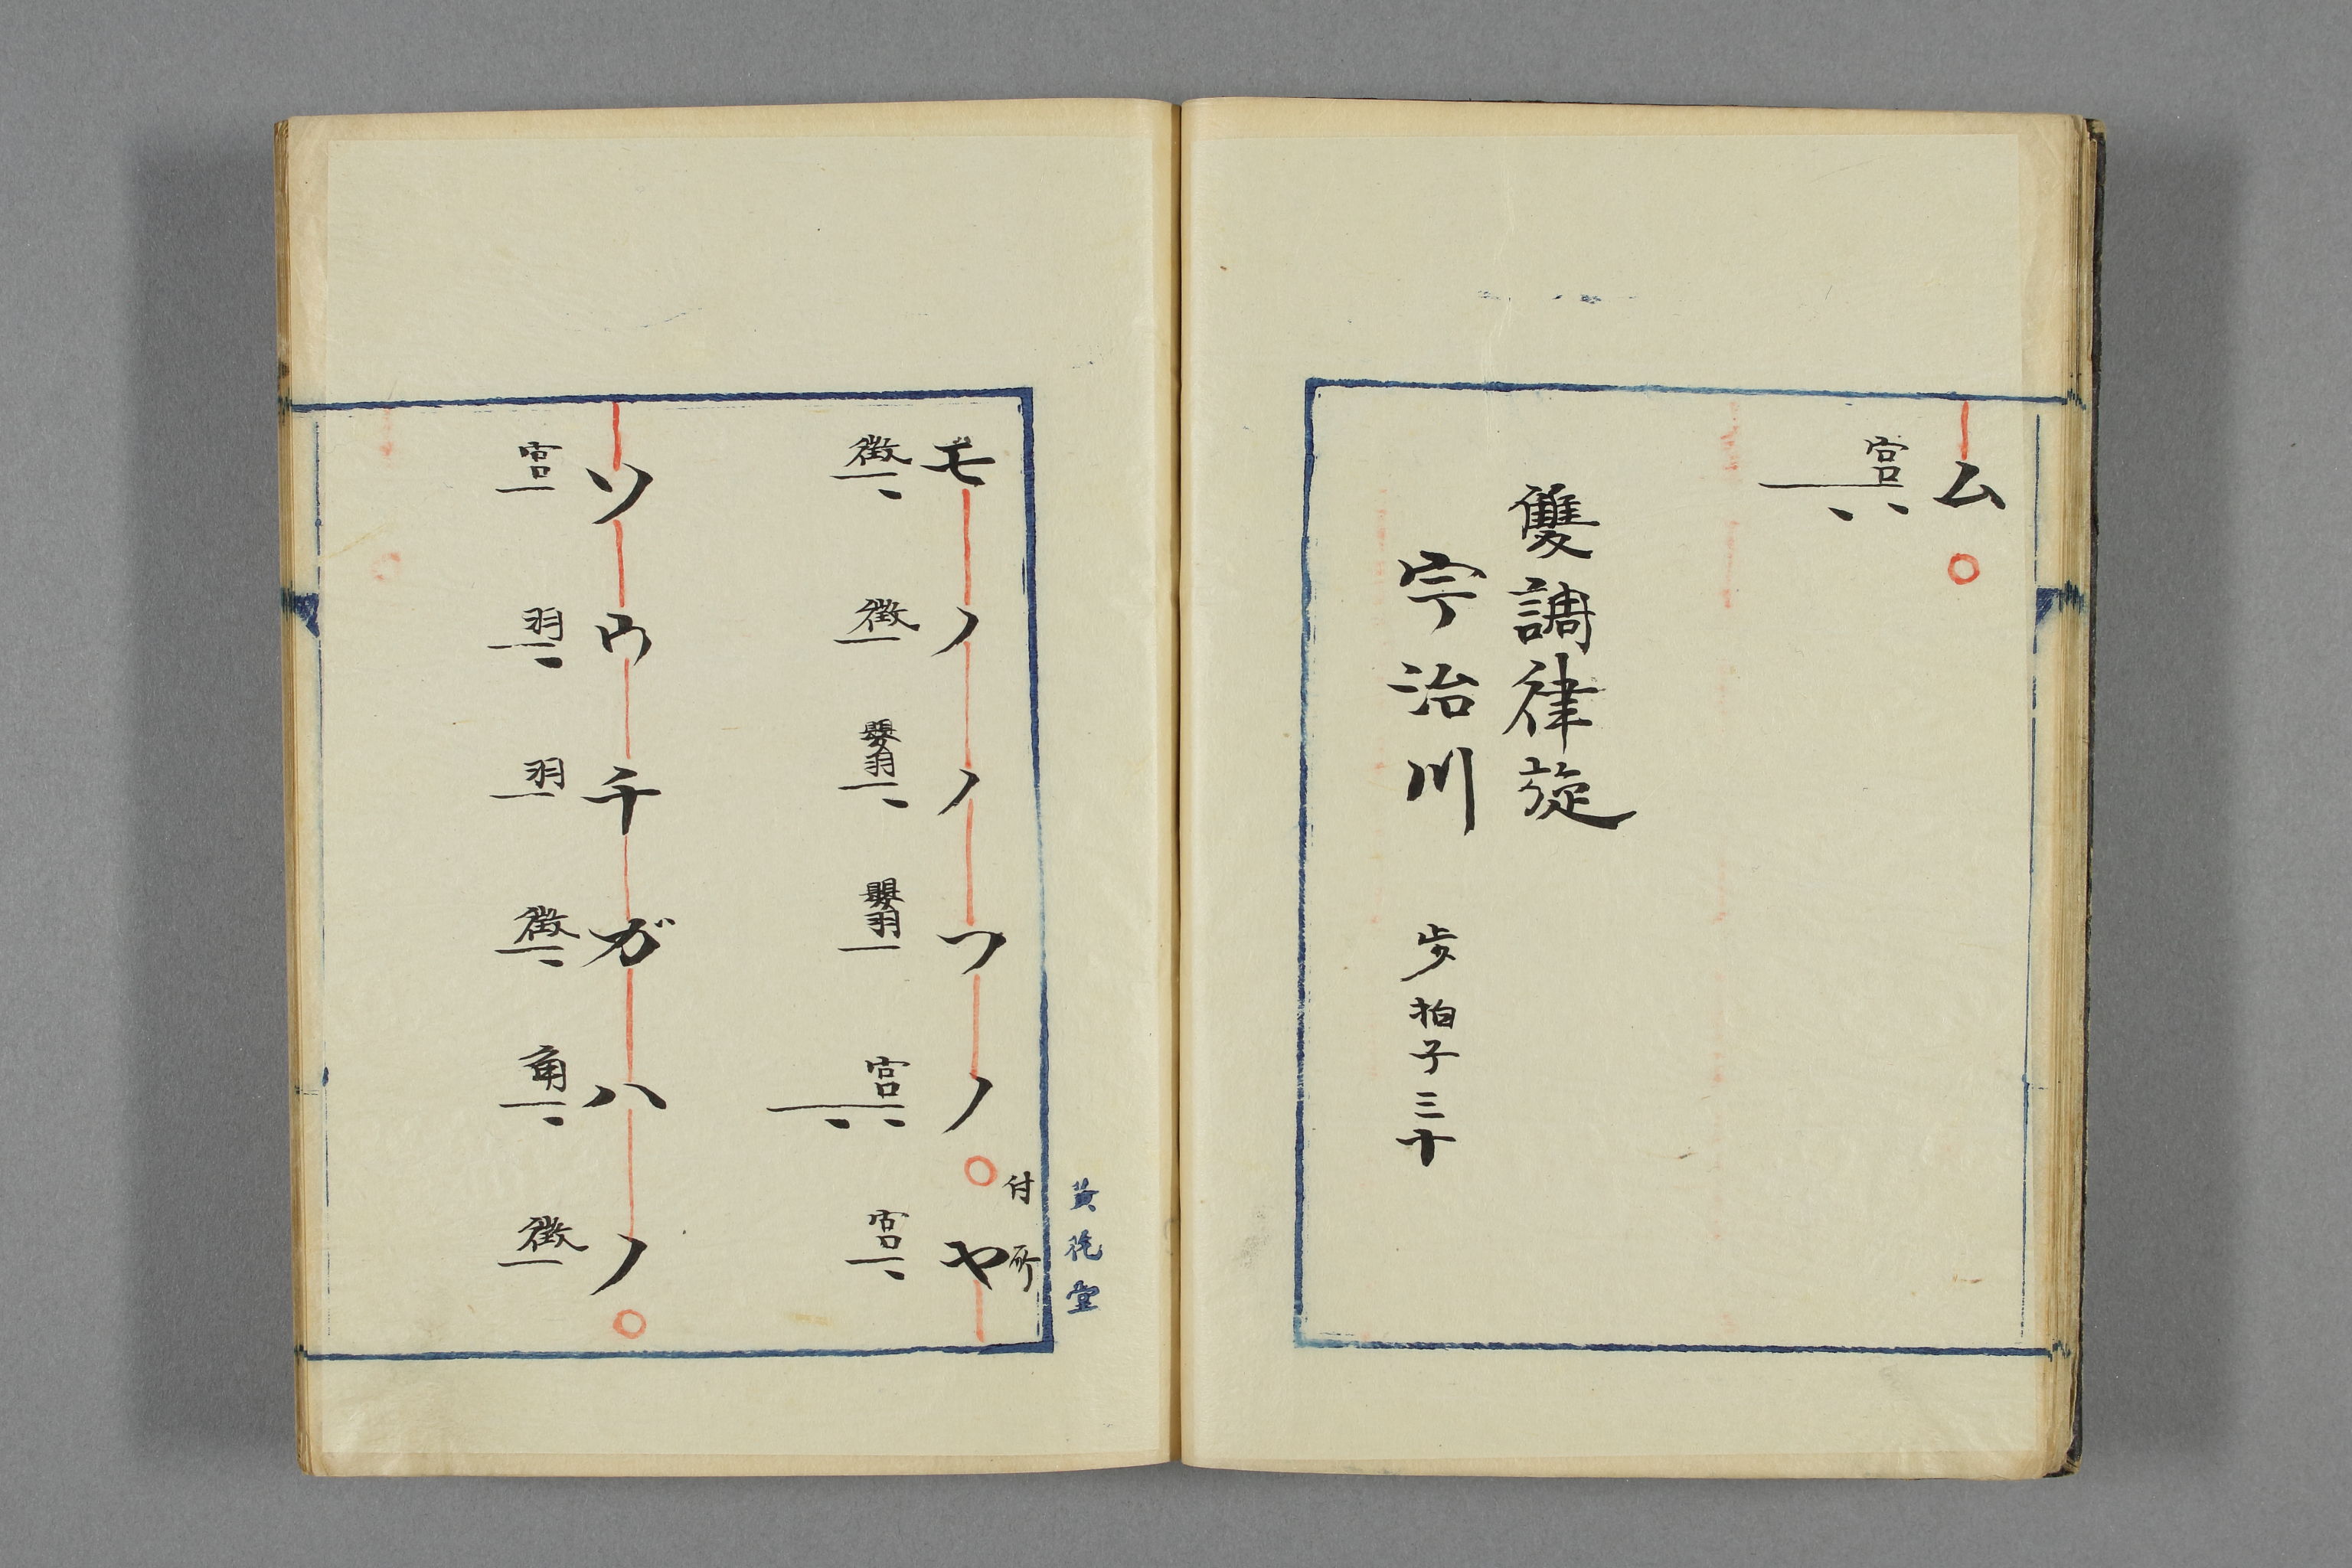 ム
宮
雙調律旋
宇治川 歩拍子三十
モノノフノ 付所 ヤ
徴 徴 嬰羽 嬰羽 宮 宮
ソウチガハノ
宮 羽 羽 徴 角 徴